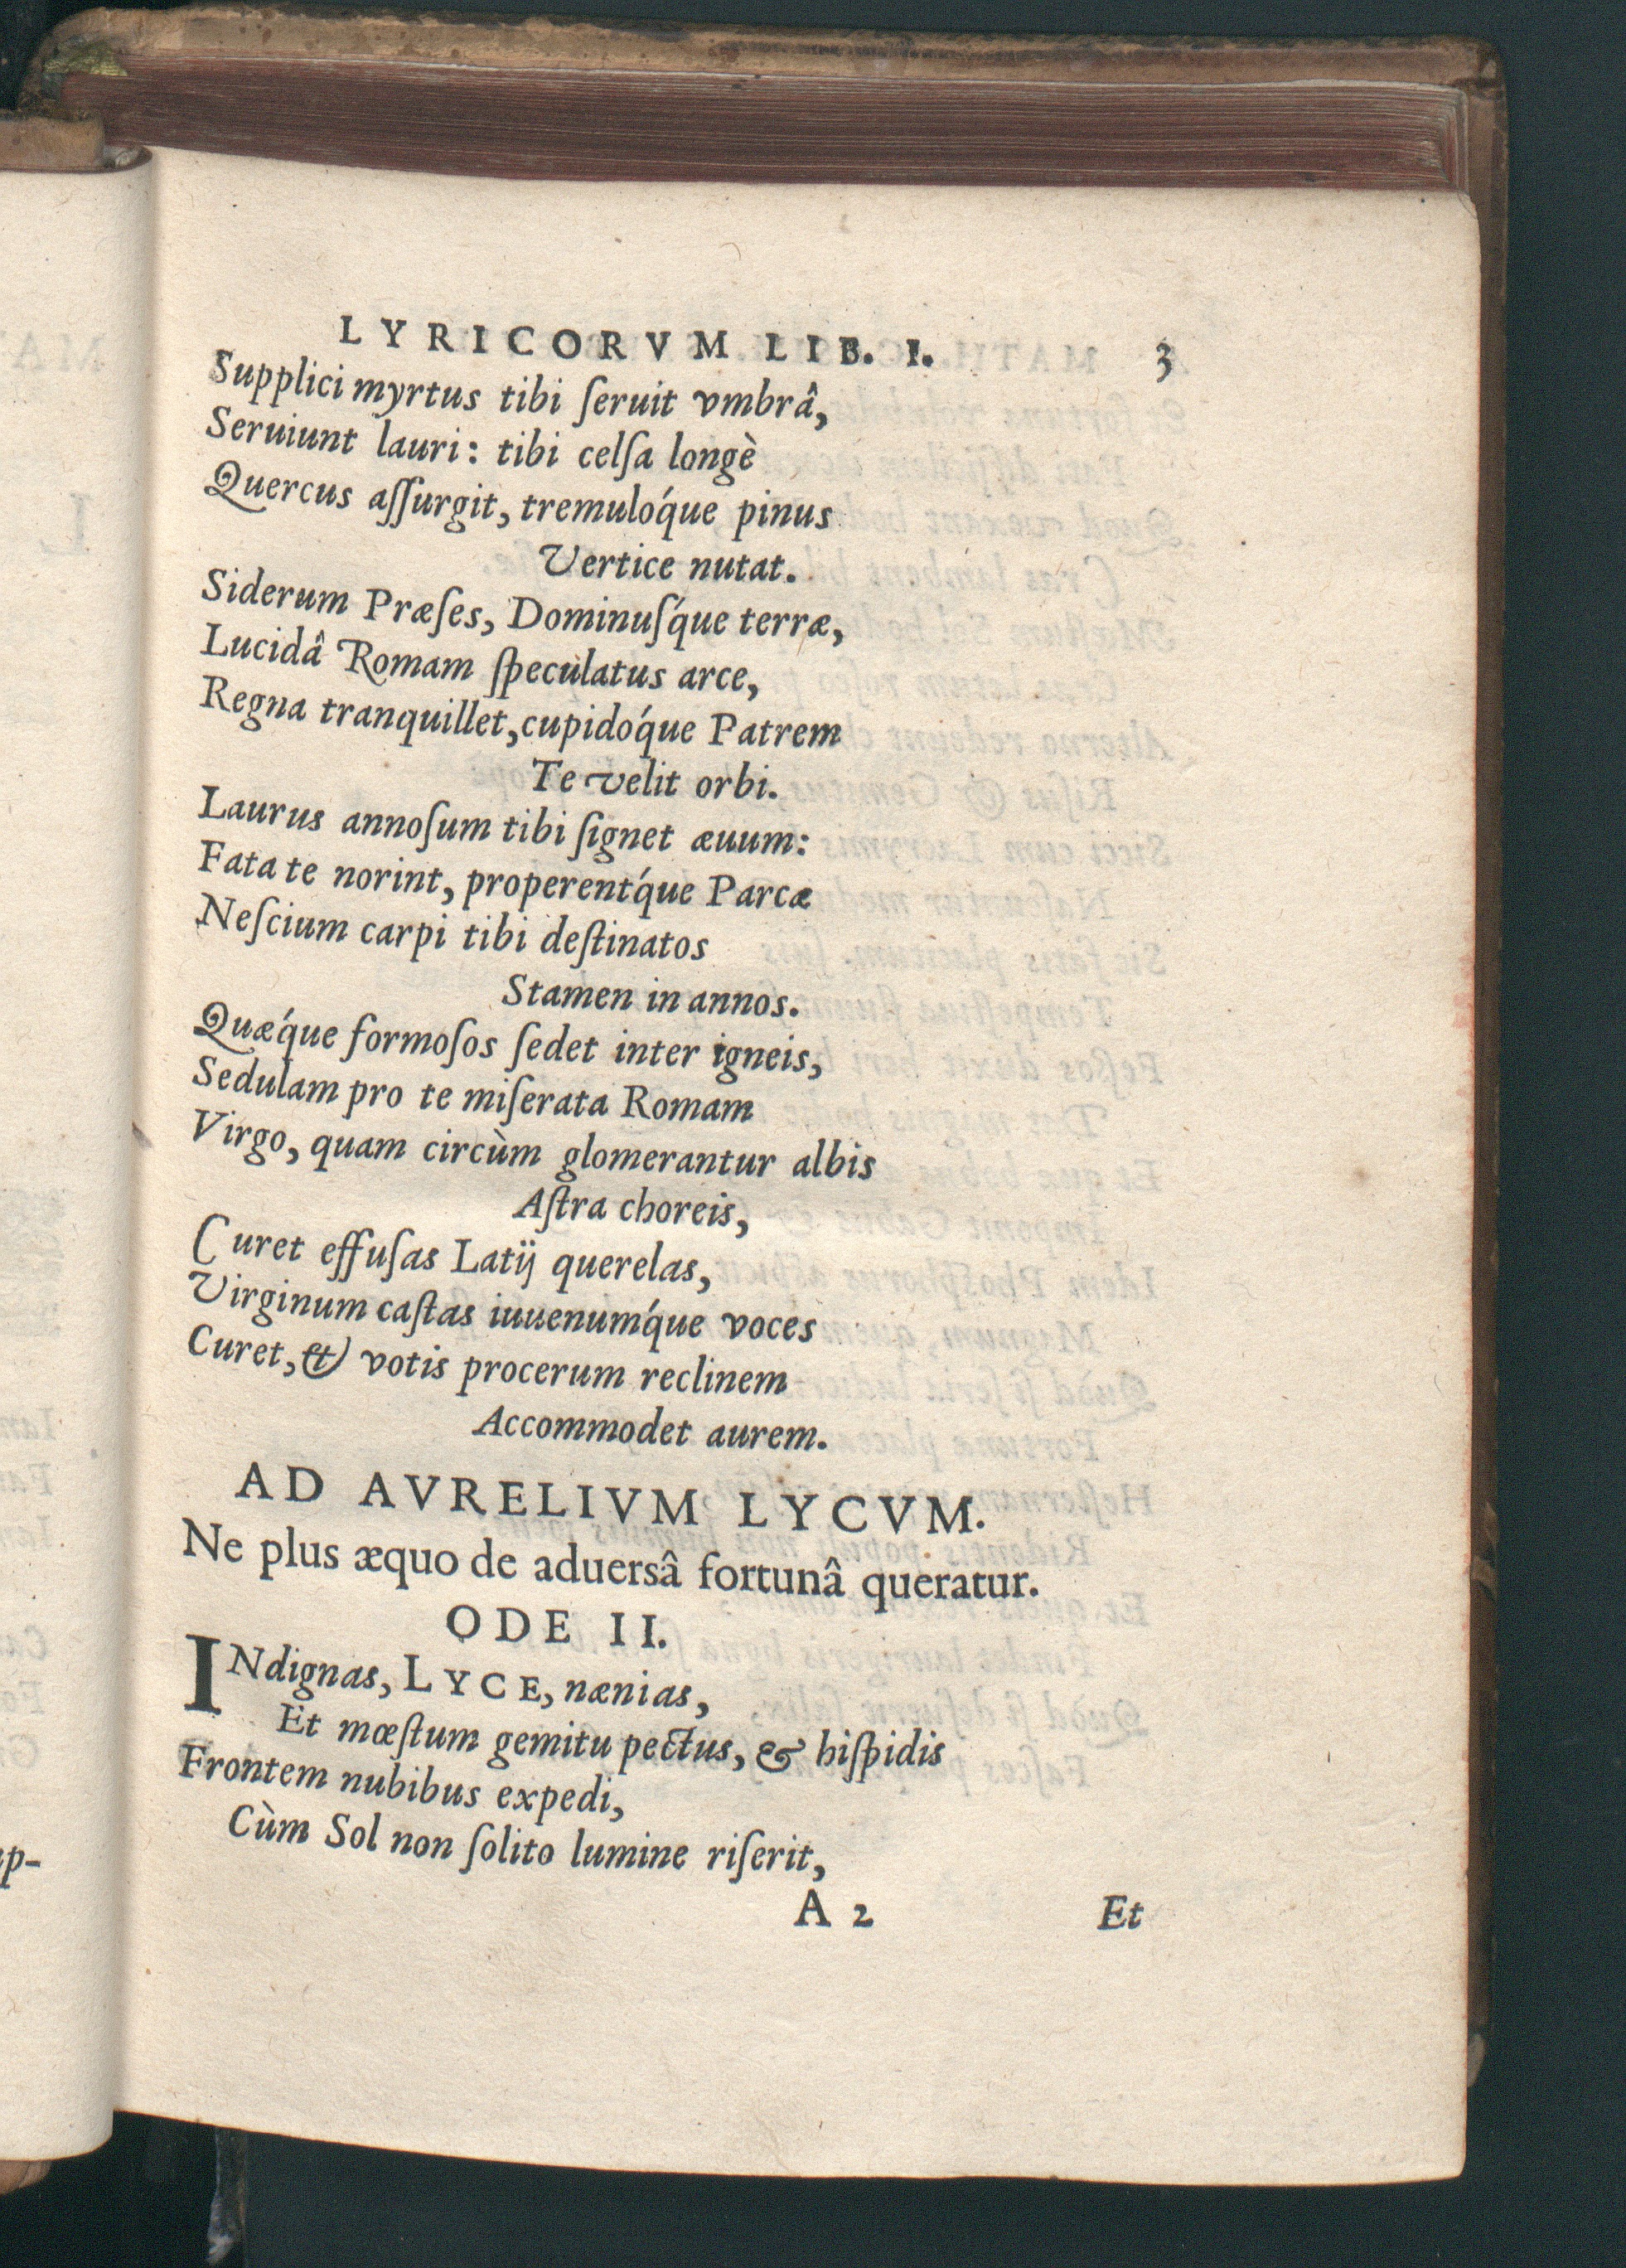 LYRICORVM LIB. I. 3
Supplici myrtus tibi ſeruit vmbrâ,
Seruiunt lauri: tibi celſa longè
Quercus aſſurgit, tremulóque pinus
Vertice nutat.
Siderum Præſes, Dominuſque terræ,
Lucidâ Romam ſpeculatus arce,
Regna tranquillet, cupidóque Patrem
Te velit orbi.
Laurus annoſum tibi ſignet æuum:
Fata te norint, properentq́ue Parcæ
Neſcium carpi tibi deſtinatos
Stamen in annos.
Quæq́ue formoſos ſedet inter igneis,
Sedulam pro te miſerata Romam
Virgo, quam circùm glomerantur albis
Aſtra choreis,
Curet effuſas Latij querelas,
Virginum caſtas iuuenumq́ue voces
Curet, & votis procerum reclinem
Accommodet aurem.
AD AVRELIVM LYCVM.
Ne plus æquo de aduersâ fortunâ queratur.
ODE II.
INdignas, LYCE, nænias,
Et mœſtum gemitu pectus, & hiſpidis
Frontem nubibus expedi,
Cùm Sol non ſolito lumine riſerit,
A 2 Et
p-